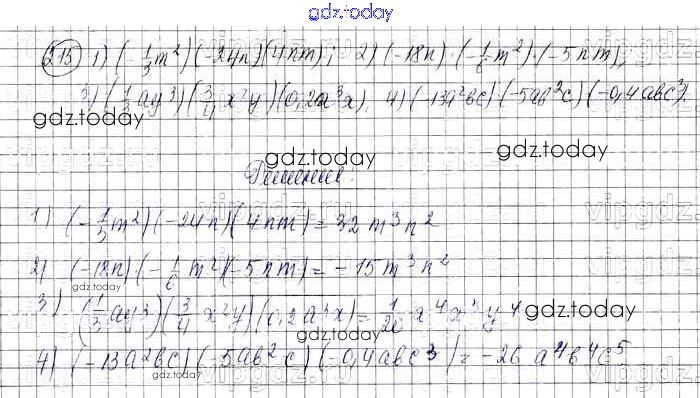 gdz.today
215 1) (-1/3 m²)(-24n)(4nm); 2) (-18n)·(-1/6 m²)·(-5nm);
3) (1/3 ay³)(3/4 x²y)(0,2a³x). 4) (-13a²bc)(-5ab²c)(-0,4abc³).
gdz.today
gdz.today gdz.today
Решение:
1) (-1/3 m²)(-24n)(4nm) = 32m³n²
2) (-18n)·(-1/6 m²)(-5nm) = -15m³n²
3) (1/3 ay³)(3/4 x²y)(0,2a³x) = 1/20 a⁴x³y⁴
gdz.today gdz.today
4) (-13a²bc)(-5ab²c)(-0,4abc³) = -26a⁴b⁴c⁵
gdz.today